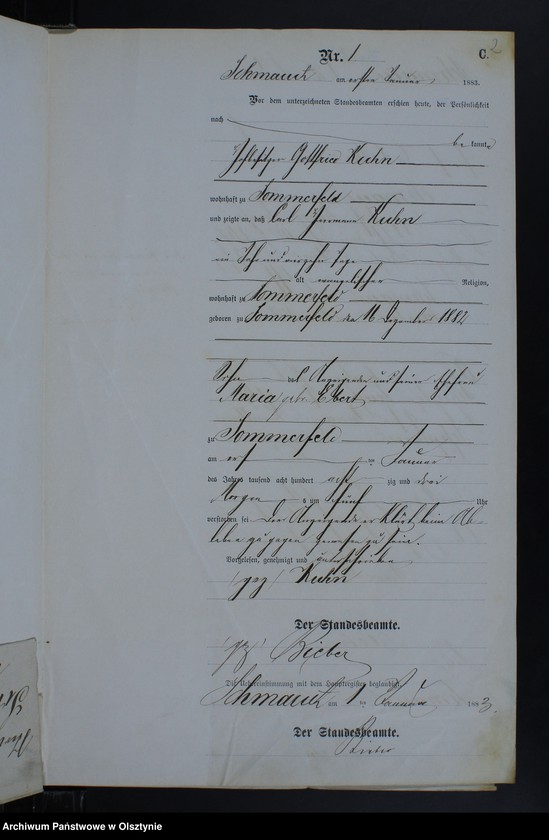 Nr. 1
C. 2
Schmauch am ersten Januar 1883.
Vor dem unterzeichneten Standesbeamten erschien heute, der Persönlichkeit
nach
bekannt,
Gottfried Kuhn
wohnhaft zu Sommerfeld
und zeigte an, daß Carl Herrmann Kuhn
alt evangelischer Religion,
wohnhaft zu Sommerfeld
geboren zu Sommerfeld den 16 Dezember 1882
Sohn des Anzeigenden und seiner Ehefrau
Maria geb. Ebert
zu Sommerfeld
am Januar
des Jahres tausend acht hundert achtzig und drei
Morgens um fünf Uhr
verstorben sei. Der Anzeigende erklärt, beim Ab-
leben zugegen gewesen zu sein.
Vorgelesen, genehmigt und unterschrieben
(gez) Kuhn
Der Standesbeamte.
(gez) Bieber
Die Uebereinstimmung mit dem Hauptregister beglaubigt
Schmauch am 1 ten Januar 1883.
Der Standesbeamte.
Bieber
Archiwum Państwowe w Olsztynie